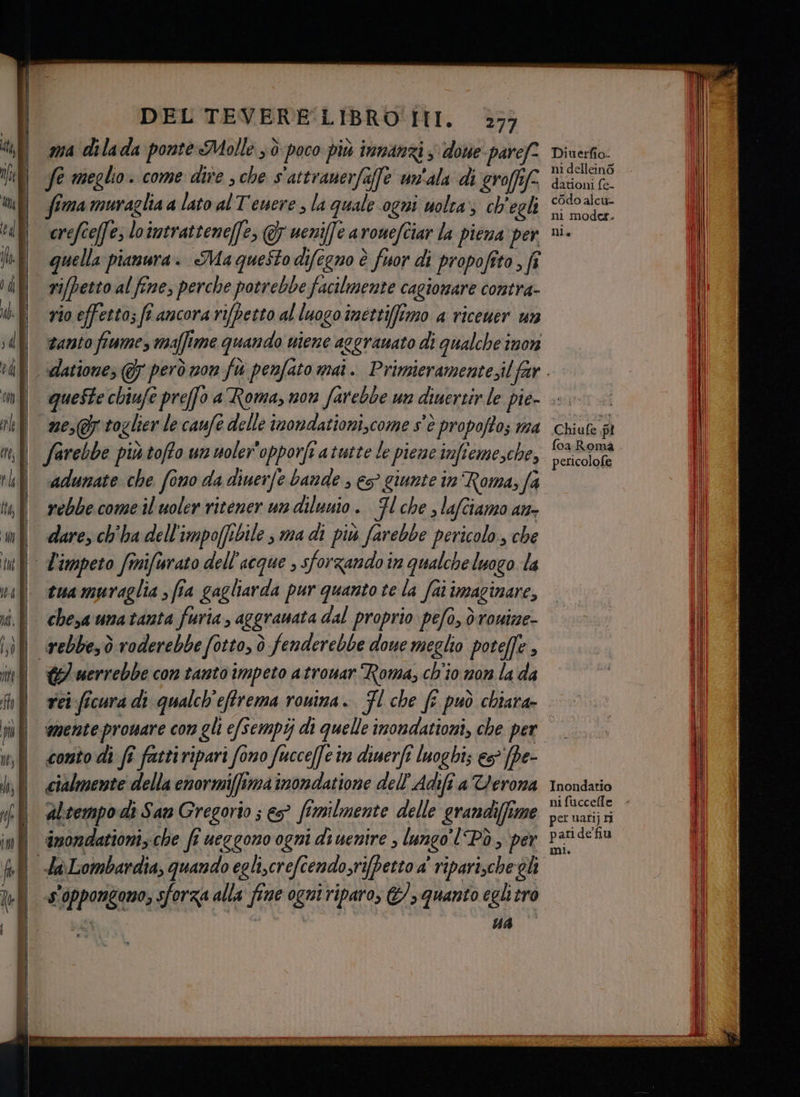 DEL TEVERE LIBRO III. 277
ma dilada ponte Molle, ò poco più innanzi, doue pareſ-
ſe meglio. come dire, che s'attrauerſaſſe un'ala di groſſiſ-
ſima muraglia a lato al Teuere, la quale ogni uolta, ch'egli
creſceſſe, lo intratteneſſe, & ueniſſe a roueſciar la piena per
quella pianura. Ma queſto diſegno è fuor di propoſito, ſi
riſpetto al fine, perche potrebbe facilmente cagionare contra-
rio effetto; ſi ancora riſpetto al luogo inettiſſimo a riceuer un
tanto fiume, maſſime quando uiene aggrauato di qualche inon
datione, & però non fù penſato mai. Primieramente, il far
queſte chiuſe preſſo a Roma, non ſarebbe un diuertir le pie-
ne, & toglier le cauſe delle inondationi, come s'è propoſto; ma
ſarebbe più toſto un uoler'opporſi a tutte le piene inſieme, che,
adunate che ſono da diuerſe bande, & giunte in Roma, ſa
rebbe come il uoler ritener un diluuio. Il che, laſciamo an-
dare, ch'ha dell'impoſſibile, ma di più ſarebbe pericolo, che
l'impeto ſmiſurato dell'acque, sforzando in qualche luogo la
tua muraglia, ſia gagliarda pur quanto te la ſai imaginare,
che, a una tanta furia, aggrauata dal proprio peſo, ò rouine-
rebbe, ò roderebbe ſotto, ò fenderebbe doue meglio poteſſe,
& uerrebbe con tanto impeto a trouar Roma, ch'io non la da
rei ſicura di qualch'eſtrema rouina. Il che ſi può chiara-
mente prouare con gli eſsempij di quelle inondationi, che per
conto di ſi fatti ripari ſono ſucceſſe in diuerſi luoghi; & ſpe-
cialmente della enormiſſima inondatione dell'Adiſi a Verona
al tempo di San Gregorio; & ſimilmente delle grandiſſime
inondationi, che ſi ueggono ogni dì uenire, lungo'l Pò, per
la Lombardia, quando egli, creſcendo, riſpetto a' ripari, che gli
s'oppongono, sforza alla fine ogni riparo, &, quanto egli tro
ua
Diuerſio-
ni delleinõ
dationi ſe-
cõdo alcu-
ni moder-
ni.
Chiuſe p̃ſ
ſoa Roma
pericoloſe
Inondatio
ni ſucceſſe
per uarij ri
pari de' fiu
mi.